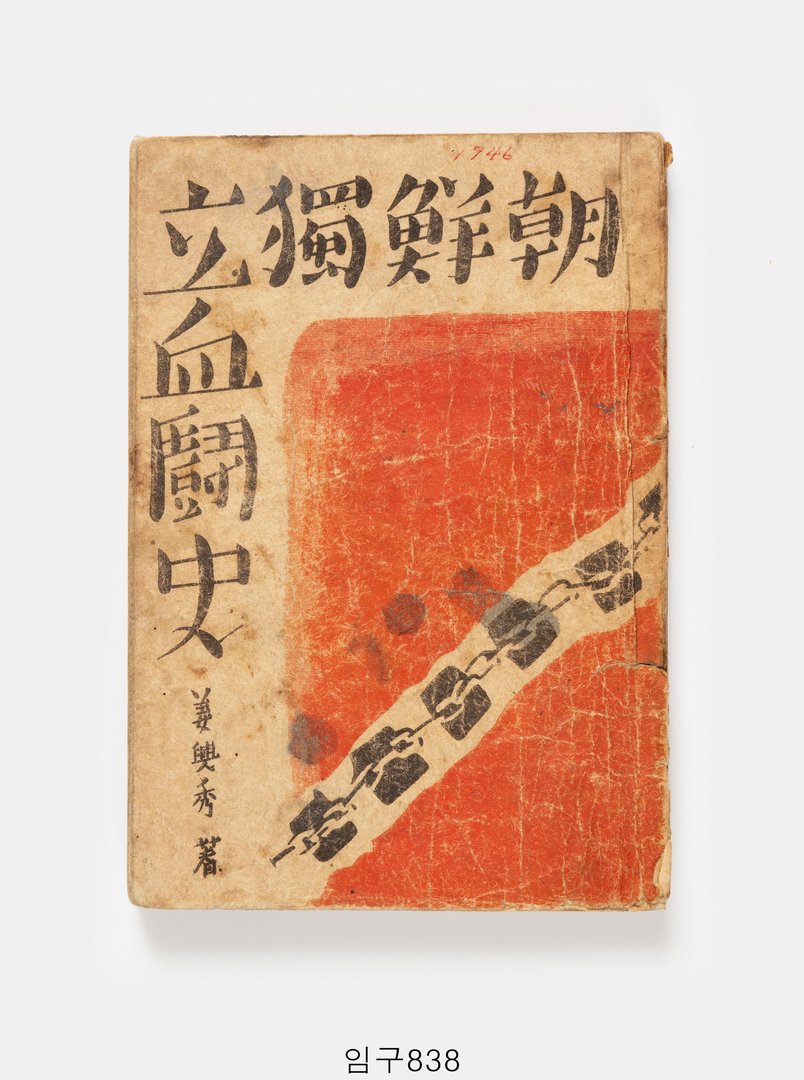 1946
朝鮮獨立血鬪史
姜興秀 著
임구838